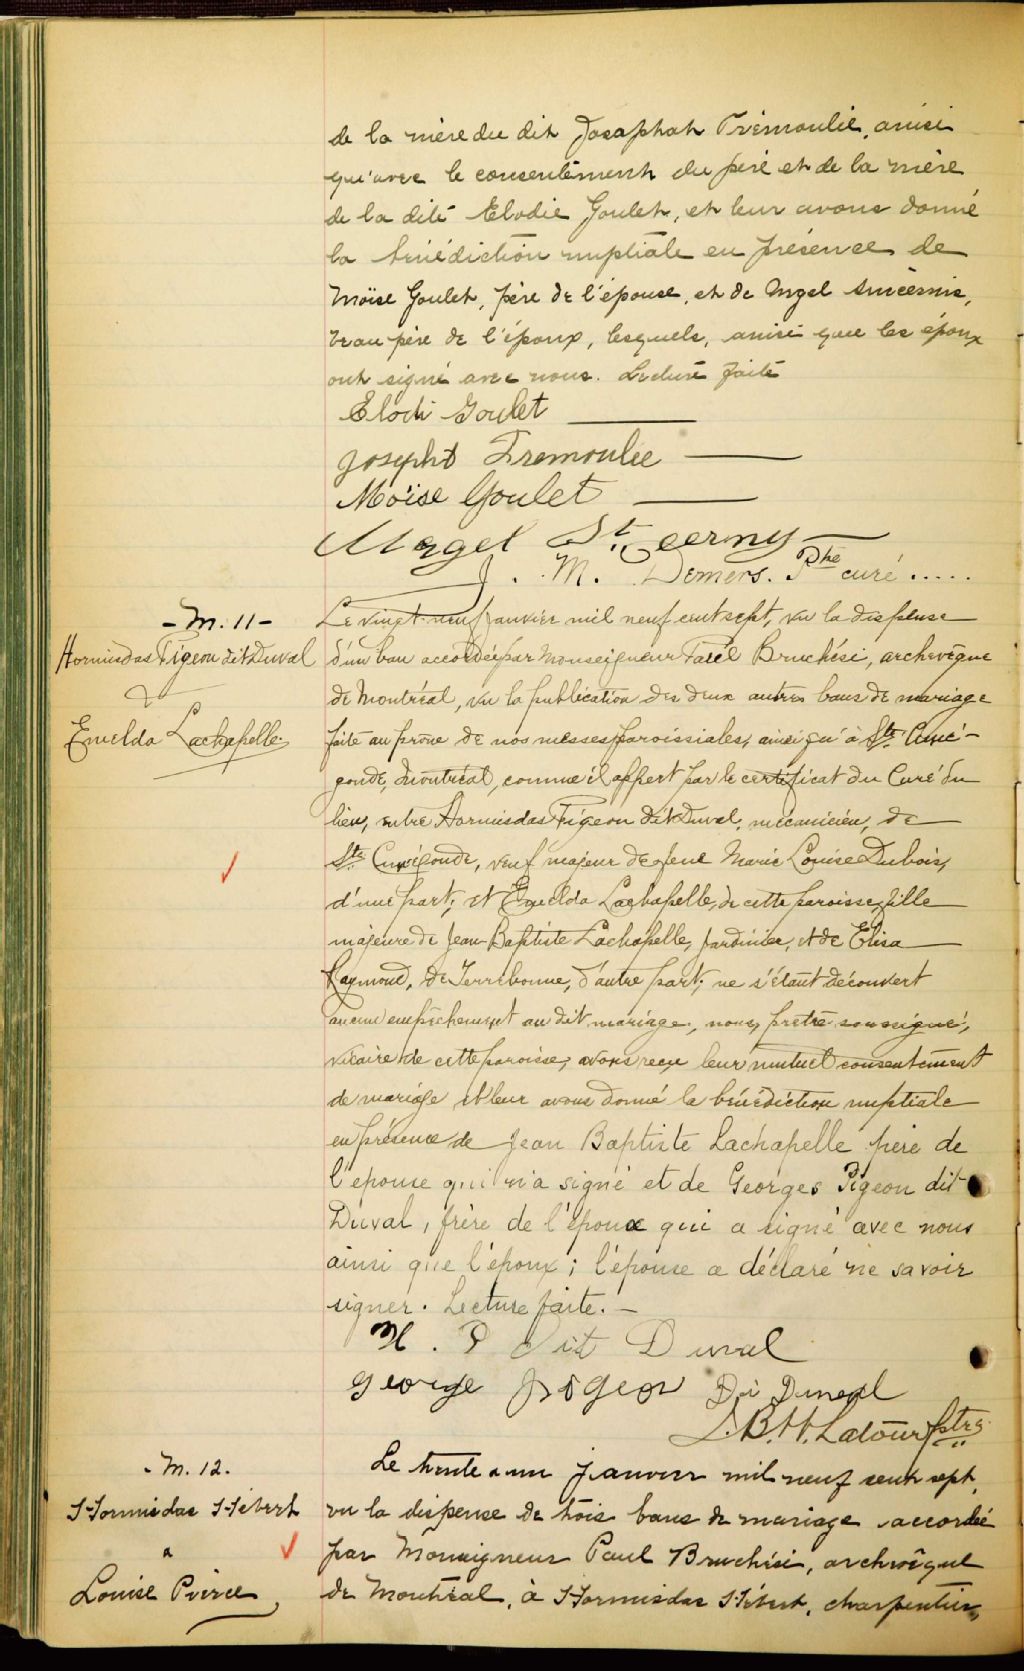 de la mère du dit Josaphat Trémoulie, ainsi
qu'avec le consentement du père et de la mère
de la dite Elodie Goulet, et leur avons donné
la bénédiction nuptiale en présence de
Moïse Goulet, père de l'épouse, et de
beau père de l'époux, lesquels, ainsi que les époux
ont signé avec nous. Lecture faite
Elodi Goulet
Josepht Tremoulie
Moïse Goulet
Magel St
J. M. Demers. Ptre curé .....
- M. 11 -
Hormisdas Pigeon dit Duval
&
Emelda Lachapelle
Le vingt-neuf janvier mil neuf cent sept, vu la dispense
d'un ban accordée par Monseigneur Paul Bruchési, archevêque
de Montréal, vu la publication des deux autres bans de mariage
faite au prône de nos messes paroissiales, ainsi qu'à Ste Cuné-
gonde, Montréal, comme il appert par le certificat du Curé du
lieu, entre Hormisdas Pigeon dit Duval, mécanicien, de
Ste Cunégonde, veuf majeur de feue Marie Louise Dubois,
d'une part; et Emelda Lachapelle, de cette paroisse, fille
majeure de Jean-Baptiste Lachapelle, jardinier, et de Elisa
Raymond, de Terrebonne, d'autre part; ne s'étant découvert
aucun empêchement au dit mariage, nous, prêtre soussigné,
vicaire de cette paroisse, avons reçu leur mutuel consentement
de mariage et leur avons donné la bénédiction nuptiale
en présence de Jean Baptiste Lachapelle père de
l'epouse qui n'a signé et de Georges Pigeon dit
Duval, frère de l'époux qui a signé avec nous
ainsi que l'époux; l'épouse a déclaré ne savoir
signer. Lecture faite. -
H. P dit Duval
George Pigeon Di Duval
J. B. H. Latour ptre
- M. 12.
Hormisdas Hébert
&
Louise Poirce
Le trente & un janvier mil neuf cent sept,
vu la dispense de trois bans de mariage accordée
par Monseigneur Paul Bruchési, archevêque
de Montréal, à Hormisdas Hébert, charpentier,